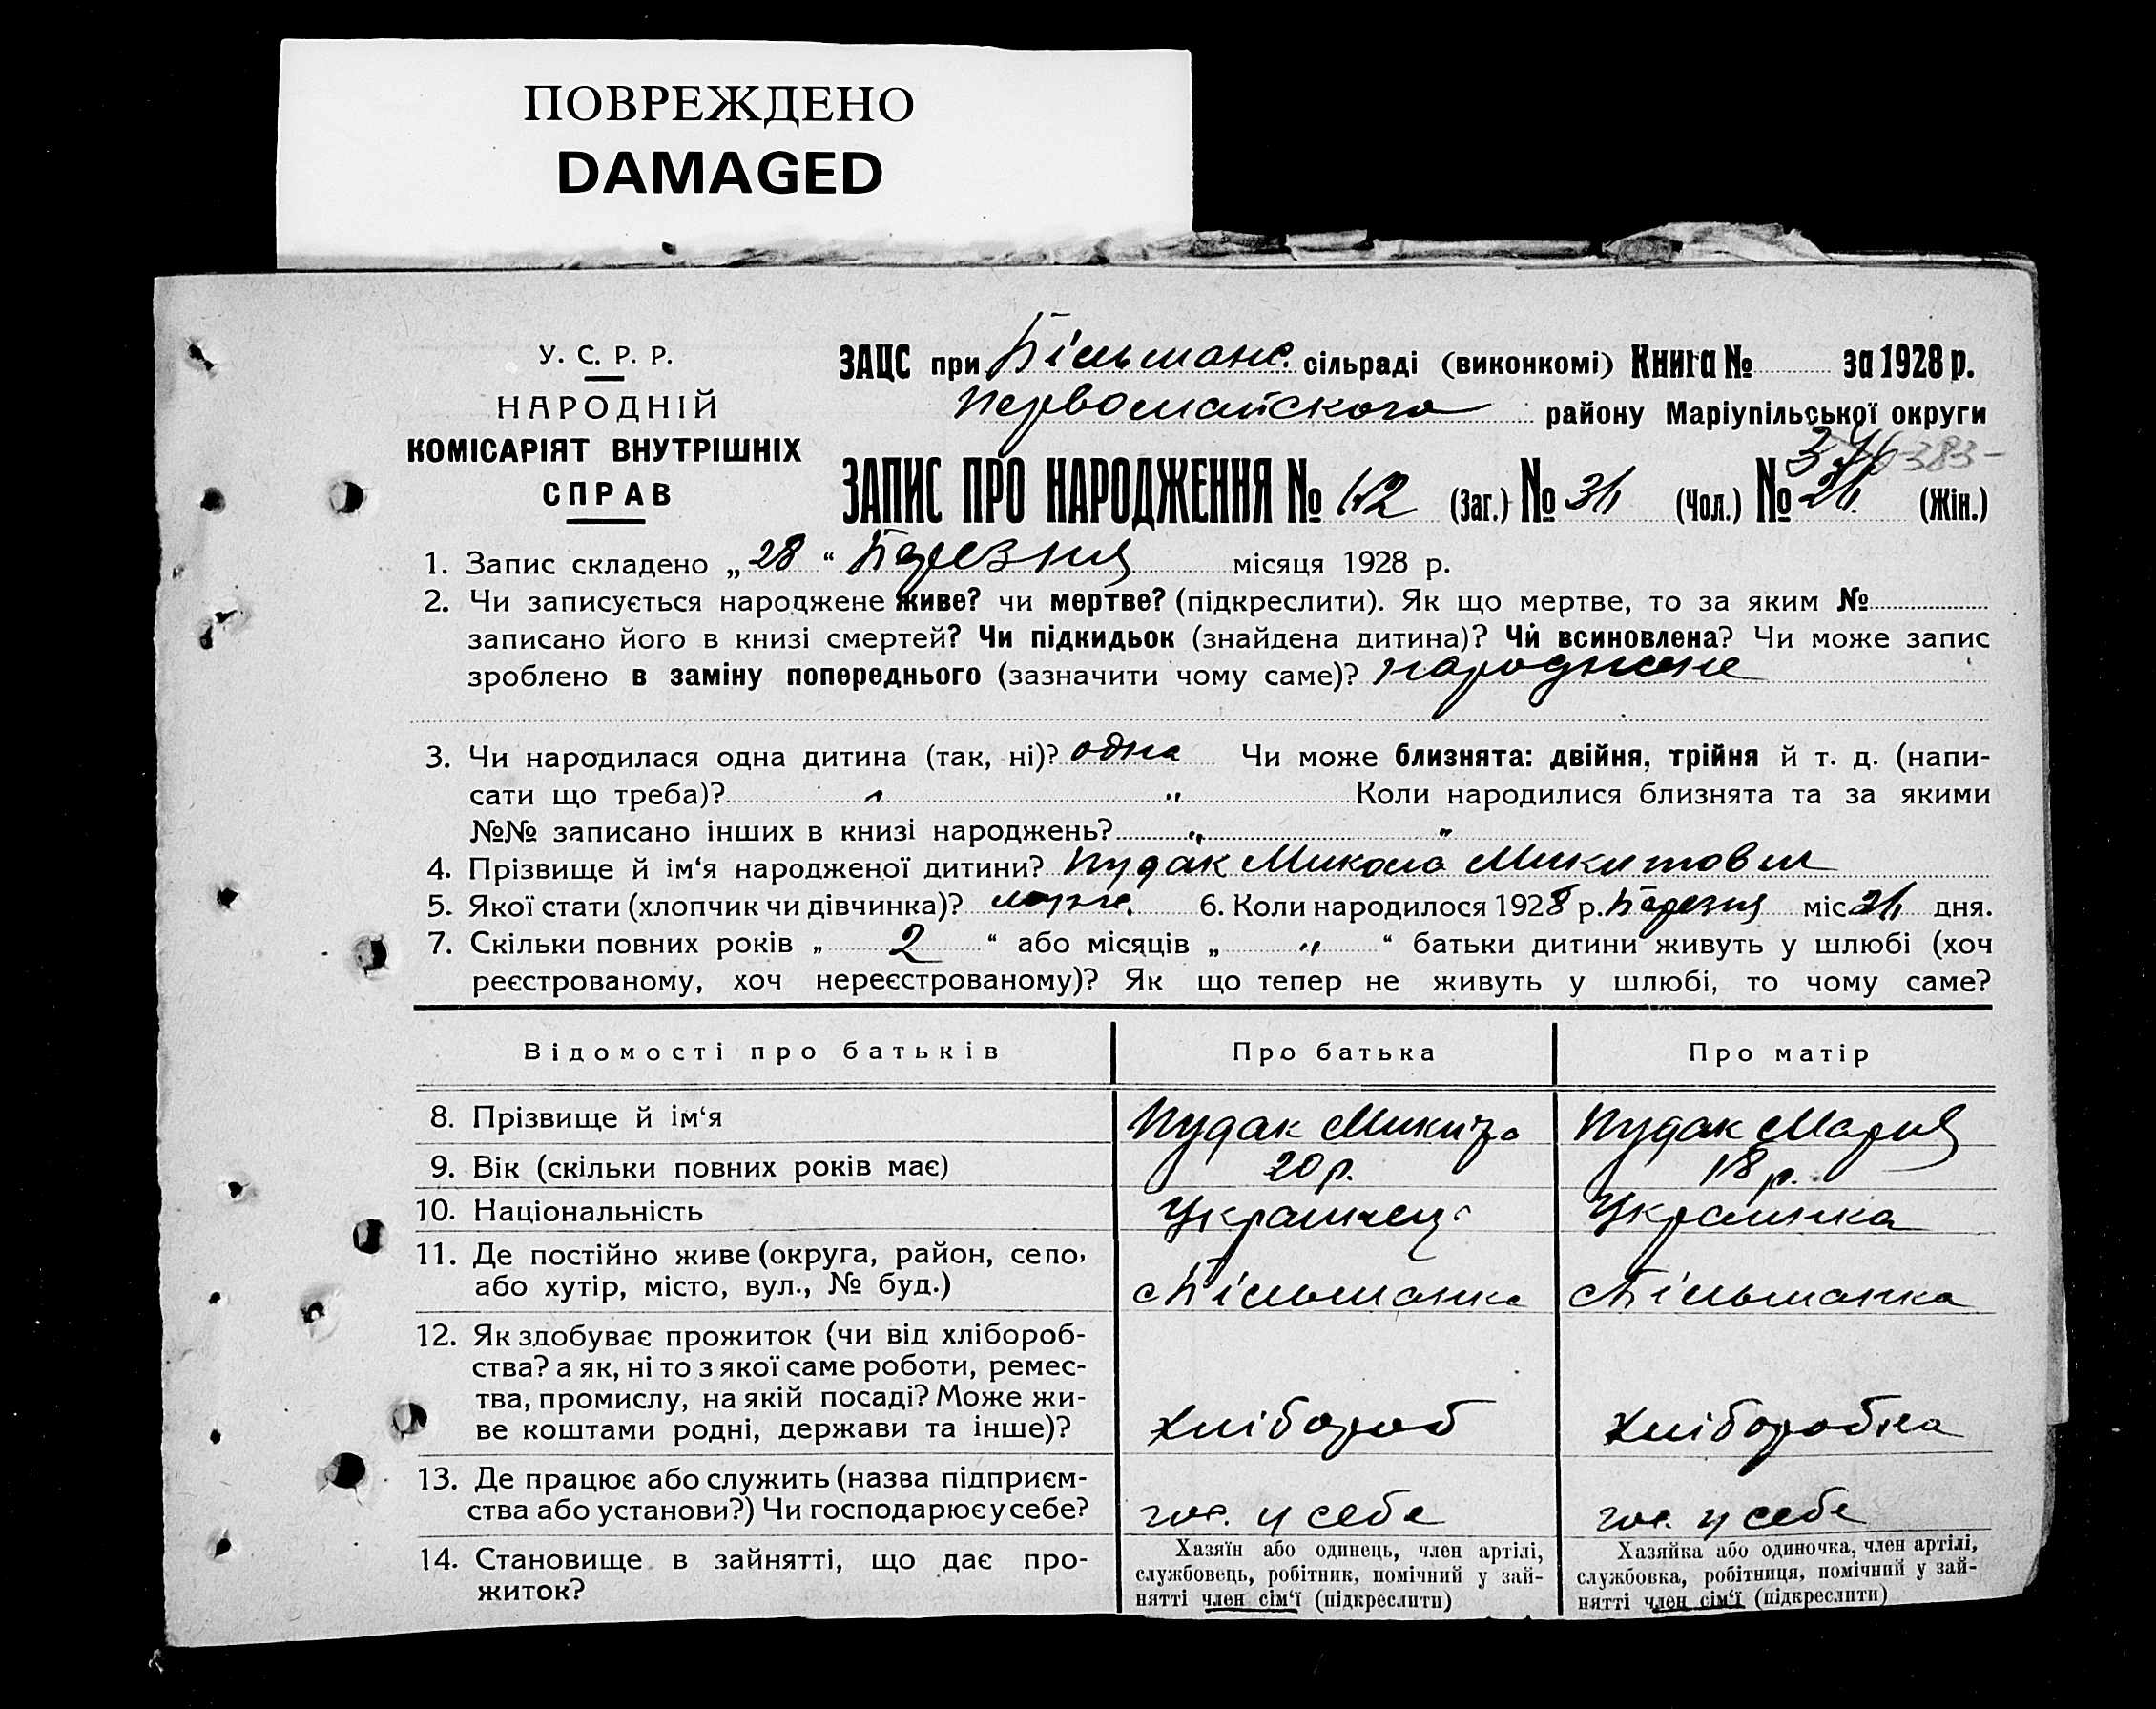 ПОВРЕЖДЕНО
DAMAGED
У. С. Р. Р.
НАРОДНІЙ
КОМІСАРІЯТ ВНУТРІШНІХ
СПРАВ
ЗАЦС при Більманс. сільраді (виконкомі) Книга № за 1928 р.
Первомайского району Маріупільської округи
383
ЗАПИС ПРО НАРОДЖЕННЯ № (Заг.) № (Чол.) № (Жін.)
1. Запис складено „28“ Березня місяця 1928 р.
2. Чи записується народжене живе? чи мертве? (підкреслити). Як що мертве, то за яким №
записано його в книзі смертей? Чи підкидьок (знайдена дитина)? Чи всиновлена? Чи може запис
зроблено в заміну попереднього (зазначити чому саме)? народжене
3. Чи народилася одна дитина (так, ні)? одна Чи може близнята: двійня, трійня й т. д. (напи-
сати що треба)? „ „ Коли народилися близнята та за якими
№№ записано інших в книзі народжень? „ „
4. Прізвище й ім‘я народженої дитини? Пудак Микола Микитович
5. Якої стати (хлопчик чи дівчинка)? 6. Коли народилося 1928 р. Березня міс. дня.
7. Скільки повних років „ 2 “ або місяців „ „ “ батьки дитини живуть у шлюбі (хоч
реєстрованому, хоч нереєстрованому)? Як що тепер не живуть у шлюбі, то чому саме?
Відомості про батьків Про батька Про матір
8. Прізвище й ім‘я Пудак Микита Пудак Мария
9. Вік (скільки повних років має) 20 р. 18 р.
10. Національність Українець Українка
11. Де постійно живе (округа, район, село,
або хутір, місто, вул., № буд.) с Більманка с Більманка
12. Як здобуває прожиток (чи від хлібороб-
ства? а як, ні то з якої саме роботи, ремес-
тва, промислу, на якій посаді? Може жи-
ве коштами родні, держави та інше)? Хлібороб Хліборобка
13. Де працює або служить (назва підприєм-
ства або установи?) Чи господарює у себе? гос. у себе гос. у себе
14. Становище в зайнятті, що дає про-
житок?
Хазяїн або одинець, член артілі,
службовець, робітник, помічний у зай-
нятті член сім‘ї (підкреслити)
Хазяйка або одиночка, член артілі,
службовка, робітниця, помічний у зай-
нятті член сім‘ї (підкреслити)